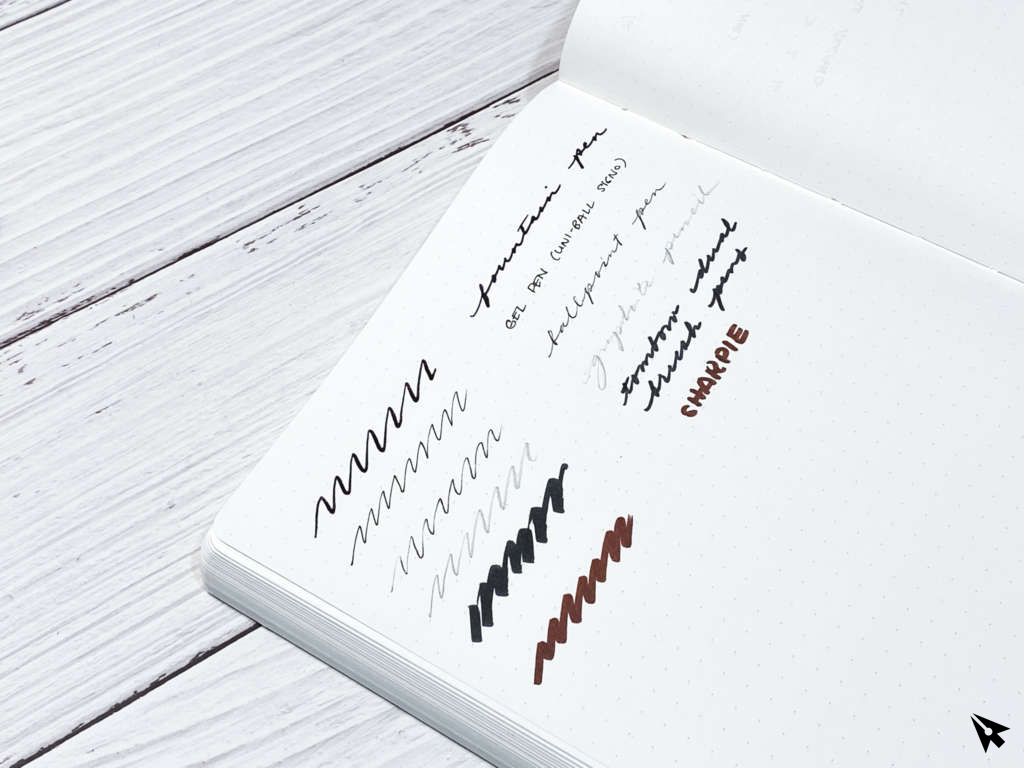 fountain pen
GEL PEN (UNI-BALL SIGNO)
ballpoint pen
graphite pencil
tombow dual
brush pens
SHARPIE